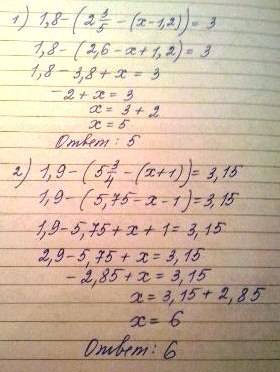 1) 1,8-(2 3/5-(x-1,2))=3
1,8-(2,6-x+1,2)=3
1,8-3,8+x=3
-2+x=3
x=3+2
x=5
Ответ: 5
2) 1,9-(5 3/4-(x+1))=3,15
1,9-(5,75-x-1)=3,15
1,9-5,75+x+1=3,15
2,9-5,75+x=3,15
-2,85+x=3,15
x=3,15+2,85
x=6
Ответ: 6